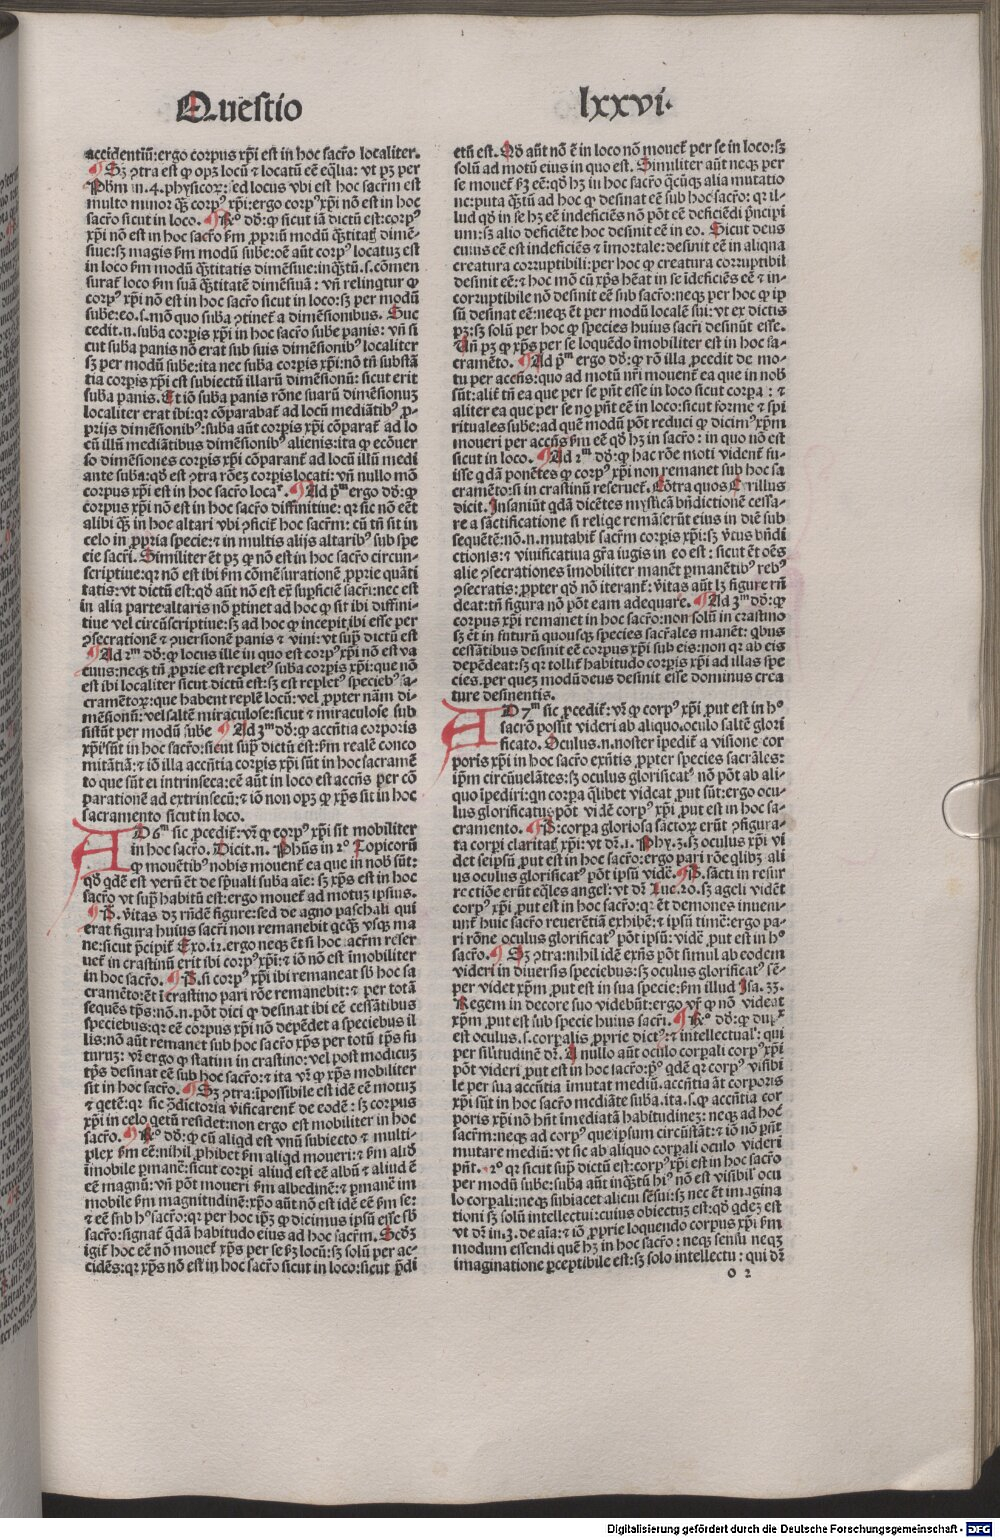 Questio
lxxvi.
accidentiū: ergo corpus xp̄i est in hoc sacr̄o localiter.
¶ Sꝫ ꝯtra est ꝙ opꝫ locū ⁊ locatū eē eq̄lia: vt pꝫ per
Ph̄m in .4. physicoꝝ: sed locus vbi est hoc sacr̄m est
multo minor q̄ꝫ corpꝰ xp̄i: ergo corpꝰ xp̄i nō est in hoc
sacr̄o sicut in loco. ¶ R̄º dō: ꝙ sicut iā dictū est: corpꝰ
xp̄i nō est in hoc sacro ẜm ꝓpriū modū q̄titatꝭ dimē-
siue: sꝫ magis ẜm modū sube: oē aūt corpꝰ locatuꝫ est
in loco ẜm modū q̄titatis dimēsiue: inq̄tū .s. cōmen
surat̄ loco ẜm suā q̄titatē dimēsiuā: vn̄ relinqtur ꝙ
corpꝰ xp̄i nō est in hoc sacr̄o sicut in loco: sꝫ per modū
sube: eo .s. mō quo suba ꝯtinet̄ a dimēsionibus. Suc
cedit .n. suba corpis xp̄i in hoc sacr̄o sube panis: vn̄ si
cut suba panis nō erat sub suis dimēsionibꝰ localiter
sꝫ per modū sube: ita nec suba corpis xp̄i: nō tn̄ substā
tia corpis xp̄i est subiectū illarū dimēsionū: sicut erit
suba panis. Et iō suba panis rōne suarū dimēsionuꝫ
localiter erat ibi: qꝛ cōparabat̄ ad locū mediātibꝰ ꝓ-
prijs dimēsionibꝰ: suba aūt corpis xp̄i cōparat̄ ad lo
cū illū mediātibus dimēsionibꝰ alienis: ita ꝙ ecōuer
so dimēsiones corpis xp̄i cōparant̄ ad locū illū medi
ante suba: qd̄ est ꝯtra rōeꝫ corpis locati: vn̄ nullo mō
corpus xp̄i est in hoc sacr̄o locaʳ. ¶ Ad p̄ᵐ ergo dō: ꝙ
corpus xp̄i nō est in hoc sacr̄o diffinitiue: qꝛ sic nō eēt
alibi q̄ꝫ in hoc altari vbi ꝯficit̄ hoc sacr̄m: cū tn̄ sit in
celo in ꝓpria specie: ⁊ in multis alijs altaribꝰ sub spe
cie sacr̄i. Similiter ēt pꝫ ꝙ nō est in hoc sacr̄o circun-
scriptiue: qꝛ nō est ibi ẜm cōmēsurationē ꝓprie quāti
tatis: vt dictū est: qd̄ aūt nō est ex̄ supficiē sacr̄i: nec est
in alia parte altaris nō ꝑtinet ad hoc ꝙ sit ibi diffini-
tiue vel circūscriptiue: sꝫ ad hoc ꝙ incepit ibi esse per
ꝯsecrationē ⁊ ꝯuersionē panis ⁊ vini: vt supꝰ dictū est
¶ Ad 2ᵐ dō: ꝙ locus ille in quo est corpꝰ xp̄i nō est va
cuus: neqꝫ tn̄ ꝓprie est repletꝰ suba corpis xp̄i: que nō
est ibi localiter sicut dictū est: sꝫ est repletꝰ speciebꝰ sa-
cramētoꝝ: que habent replē locū: vel ꝓpter nām di-
mēsionū: vel saltē miraculose: sicut ⁊ miraculose sub
sistūt per modū sube. ¶ Ad 3ᵐ dō: ꝙ accn̄tia corporis
xp̄i sūt in hoc sacr̄o: sicut supꝰ dictū est: ẜm realē conco
mitātiā: ⁊ iō illa accn̄tia corpis xp̄i sūt in hoc sacramē
to que sūt ei intrinseca: eē aūt in loco est accn̄s per cō
parationē ad extrinsecū: ⁊ iō non opꝫ ꝙ xp̄s sit in hoc
sacramento sicut in loco.
AD 6ᵐ sic ꝓcedit̄: vr̄ ꝙ corpꝰ xp̄i sit mobiliter
in hoc sacr̄o. Dicit .n. Ph̄us in 2º Topicorū
ꝙ mouētibꝰ nobis mouent̄ ea que in nob̄ sūt:
qd̄ qdē est verū ēt de spūali suba aīe: sꝫ xp̄s est in hoc
sacr̄o vt supꝰ habitū est: ergo mouet̄ ad motuꝫ ipsius.
¶ P. v̄itas dꝫ rn̄dē figure: sed de agno paschali qui
erat figura huius sacr̄i non remanebit qcq̄ꝫ vsqꝫ ma
ne: sicut p̄cipit̄ Exo. 12. ergo neqꝫ ēt si hoc sacr̄m reser
uet̄ in crastinū erit ibi corpꝰ xp̄i: ⁊ iō nō est īmobiliter
in hoc sacr̄o. ¶ P. si corpꝰ xp̄i ibi remaneat sb̄ hoc sa
cramēto: ēt ī crastino pari rōe remanebit: ⁊ per totā
sequēs tp̄s: nō .n. pōt dici ꝙ desinat ibi eē cessātibus
speciebus: qꝛ eē corpus xp̄i nō depēdet a speciebus il
lis: nō aūt remanet sub hoc sacr̄o xp̄s per totū tp̄s fu
turuꝫ: vr̄ ergo ꝙ statim in crastino: vel post modicuꝫ
tp̄s desinat eē sub hoc sacr̄o: ⁊ ita vr̄ ꝙ xp̄s mobiliter
sit in hoc sacr̄o. ¶ Sꝫ ꝯtra: īpossibile est idē eē motuꝫ
⁊ qetē: qꝛ sic ꝯ̄dictoria v̄ificarent̄ de eodē: sꝫ corpus
xp̄i in celo qetū residet: non ergo est mobiliter in hoc
sacr̄o. ¶ R̄º dō: ꝙ cū aliqd est vnū subiecto ⁊ multi-
plex ẜm eē: nihil ꝓhibet ẜm aliqd moueri: ⁊ ẜm aliō
īmobile ꝑmanē: sicut corpi aliud est eē albū ⁊ aliud ē
eē magnū: vn̄ pōt moueri ẜm albedinē: ⁊ ꝑmanē im
mobile ẜm magnitudinē: xp̄o aūt nō est idē eē ẜm se:
⁊ eē sub hº sacr̄o: qꝛ per hoc ip̄ꝫ ꝙ dicimus ipsū esse sb̄
sacr̄o: signat̄ q̄dā habitudo eius ad hoc sacr̄m. Scd̄ꝫ
igit̄ hoc eē nō mouet̄ xp̄s per se ẜꝫ locū: sꝫ solū per ac-
cidēs: qꝛ xp̄s nō est in hoc sacr̄o sicut in loco: sicut p̄di
ctū est. Qd̄ aūt nō ē in loco nō mouet̄ per se in loco: sꝫ
solū ad motū eius in quo est. Similiter aūt neqꝫ per
se mouet̄ ẜꝫ eē: qd̄ hꝫ in hoc sacr̄o q̄cūqꝫ alia mutatio
ne: puta q̄tū ad hoc ꝙ desinat eē sub hoc sacr̄o: qꝛ il-
lud qd̄ in se hꝫ eē indeficiēs nō pōt eē deficiēdi p̄ncipi
um: sꝫ alio deficiēte hoc desinit eē in eo. Sicut deus
cuius eē est indeficiēs ⁊ īmortale: desinit eē in aliqua
creatura corruptibili: per hoc ꝙ creatura corruptibil
desinit eē: ⁊ hoc mō cū xp̄s hēat in se īdeficiēs eē ⁊ in-
corruptibile nō desinit eē sub sacr̄o: neqꝫ per hoc ꝙ ip
sū desinat eē: neqꝫ ēt per modū localē sui: vt ex dictus
pꝫ: sꝫ solū per hoc ꝙ species huius sacr̄i desinūt esse.
Vn̄ pꝫ ꝙ xp̄s per se loquēdo īmobiliter est in hoc sa-
cramēto. ¶ Ad p̄ᵐ ergo dō: ꝙ rō illa ꝓcedit de mo-
tu per accn̄s: quo ad motū nr̄i mouent̄ ea que in nob̄
sūt: alit̄ tn̄ ea que per se pn̄t esse in loco sicut corpa: ⁊
aliter ea que per se nō pn̄t eē in loco: sicut forme ⁊ spi
rituales sube: ad quē modū pōt reduci ꝙ dicimꝰ xp̄m
moueri per accn̄s ẜm eē qd̄ hꝫ in sacr̄o: in quo nō est
sicut in loco. ¶ Ad 2ᵐ dō: ꝙ hac rōe moti vident̄ fu-
isse qdā ponētes ꝙ corpꝰ xp̄i non remanet sub hoc sa
cramēto: si in crastinū reseruet̄. Cōtra quos Cyrillus
dicit. Insaniūt qdā dicētes mysticā bn̄dictionē cessa-
re a sāctificatione si reliqe remāserūt eius in diē sub
sequētē: nō .n. mutabit̄ sacr̄m corpis xp̄i: sꝫ v̄tus bn̄di
ctionis: ⁊ viuificatiua gr̄a iugis in eo est: sicut ēt oēs
alie ꝯsecrationes īmobiliter manēt ꝑmanētibꝰ rebꝰ
ꝯsecratis: ꝓpter qd̄ nō iterant̄: v̄itas aūt lꝫ figure rn̄
deat: tn̄ figura nō pōt eam adequare. ¶ Ad 3ᵐ dō: ꝙ
corpus xp̄i remanet in hoc sacr̄o: non solū in crastino
sꝫ ēt in futurū quousqꝫ species sacr̄ales manēt: qbus
cessātibus desinit eē corpus xp̄i sub eis: non qꝛ ab eis
depēdeat: sꝫ qꝛ tollit̄ habitudo corpis xp̄i ad illas spe
cies. per queꝫ modū deus desinit esse dominus crea
ture desinentis.
AD 7ᵐ sic ꝓcedit̄: vr̄ ꝙ corpꝰ xp̄i ꝓut est in hº
sacr̄o possit videri ab aliquo oculo saltē glori
ficato. Oculus .n. noster īpedit̄ a visione cor
poris xp̄i in hoc sacr̄o exn̄tis ꝓpter species sacr̄ales:
ip̄m circūuelātes: sꝫ oculus glorificatꝰ nō pōt ab ali-
quo īpediri: qn corpa q̄libet videat ꝓut sūt: ergo ocu-
lus glorificatus pōt vidē corpꝰ xp̄i ꝓut est in hoc sa-
cramento. ¶ P. corpa gloriosa sāctoꝝ erūt ꝯfigura-
ta corpi claritatꝭ xp̄i: vt dr̄. 1. Phy. 3. sꝫ oculus xp̄i vi
det seipsū ꝓut est in hoc sacr̄o: ergo pari rōe qlibꝫ ali
us oculus glorificatꝰ pōt ipsū vidē. ¶ P. sācti in resur
rectiōe erūt eq̄les angelꝭ: vt dr̄ Luc. 20. sꝫ āgeli vidēt
corpꝰ xp̄i ꝓut est in hoc sacr̄o: qꝛ ēt demones inueni
unt̄ huic sacr̄o reuerētiā exhibē: ⁊ ipsū timē: ergo pa-
ri rōne oculus glorificatꝰ pōt ipsū: vidē ꝓut est in hº
sacr̄o. ¶ Sꝫ ꝯtra: nihil idē exn̄s pōt simul ab eodem
videri in diuersis speciebus: sꝫ oculus glorificatꝰ sē-
per videt xp̄m ꝓut est in sua specie: ẜm illud Isa. 33.
Regem in decore suo videbūt: ergo vr̄ ꝙ nō videat
xp̄m ꝓut est sub specie huius sacr̄i. ¶ R̄º dō: ꝙ dupˣ
est oculus .s. corpalis ꝓprie dictꝰ: ⁊ intellectualꝭ: qui
per sil̄itudinē dr̄. A nullo aūt oculo corpali corpꝰ xp̄i
pōt videri ꝓut est in hoc sacr̄o: p̄º qdē qꝛ corpꝰ visibi
le per sua accn̄tia īmutat mediū. accn̄tia āt corporis
xp̄i sūt in hoc sacr̄o mediāte suba. ita .s. ꝙ accn̄tia cor
poris xp̄i nō hn̄t īmediatā habitudineꝫ: neqꝫ ad hoc
sacr̄m: neqꝫ ad corpꝰ que ipsum circūstāt: ⁊ iō nō pn̄t
mutare mediū: vt sic ab aliquo corpali oculo videri
pn̄t. 2º qꝛ sicut supꝰ dictū est: corpꝰ xp̄i est in hoc sacr̄o
per modū sube: suba aūt inq̄tū hꝰ nō est visibilꝭ ocu
lo corpali: neqꝫ subiacet alicui sēsui: sꝫ nec ēt imagina
tioni sꝫ solū intellectui: cuius obiectuꝫ est: qd̄ qdeꝫ est
vt dr̄ in. 3. de aīa: ⁊ iō ꝓprie loquendo corpus xp̄i ẜm
modum essendi quē hꝫ in hoc sacr̄o: neqꝫ sensu neqꝫ
imaginatione ꝑceptibile est: sꝫ solo intellectu: qui dr̄
o 2
Digitalisierung gefördert durch die Deutsche Forschungsgemeinschaft - DFG